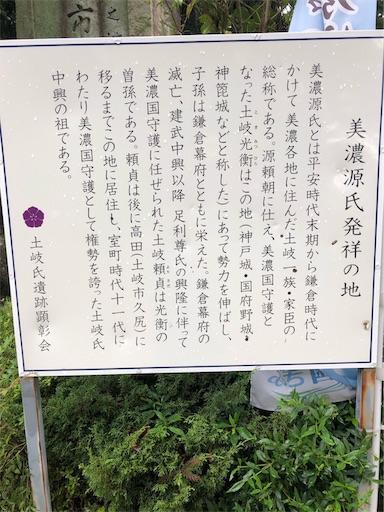 之
市
美濃源氏発祥の地
美濃源氏とは平安時代末期から鎌倉時代に
かけて美濃各地に住んだ土岐一族・家臣の
総称である。源頼朝に仕え、美濃国守護と
なった土岐光衡はこの地(神戸城・国府野城・
ときみつひら
神箆城などと称した)にあって勢力を伸ばし、
子孫は鎌倉幕府とともに栄えた。鎌倉幕府の
滅亡、建武中興以降 足利尊氏の興隆に伴って
美濃国守護に任ぜられた土岐頼貞は光衡の
曽孫である。頼貞は後に高田(土岐市久尻)に
移るまでこの地に居住し、室町時代十一代に
わたり美濃国守護として権勢を誇った土岐氏
中興の祖である。
土岐氏遺跡顕彰会